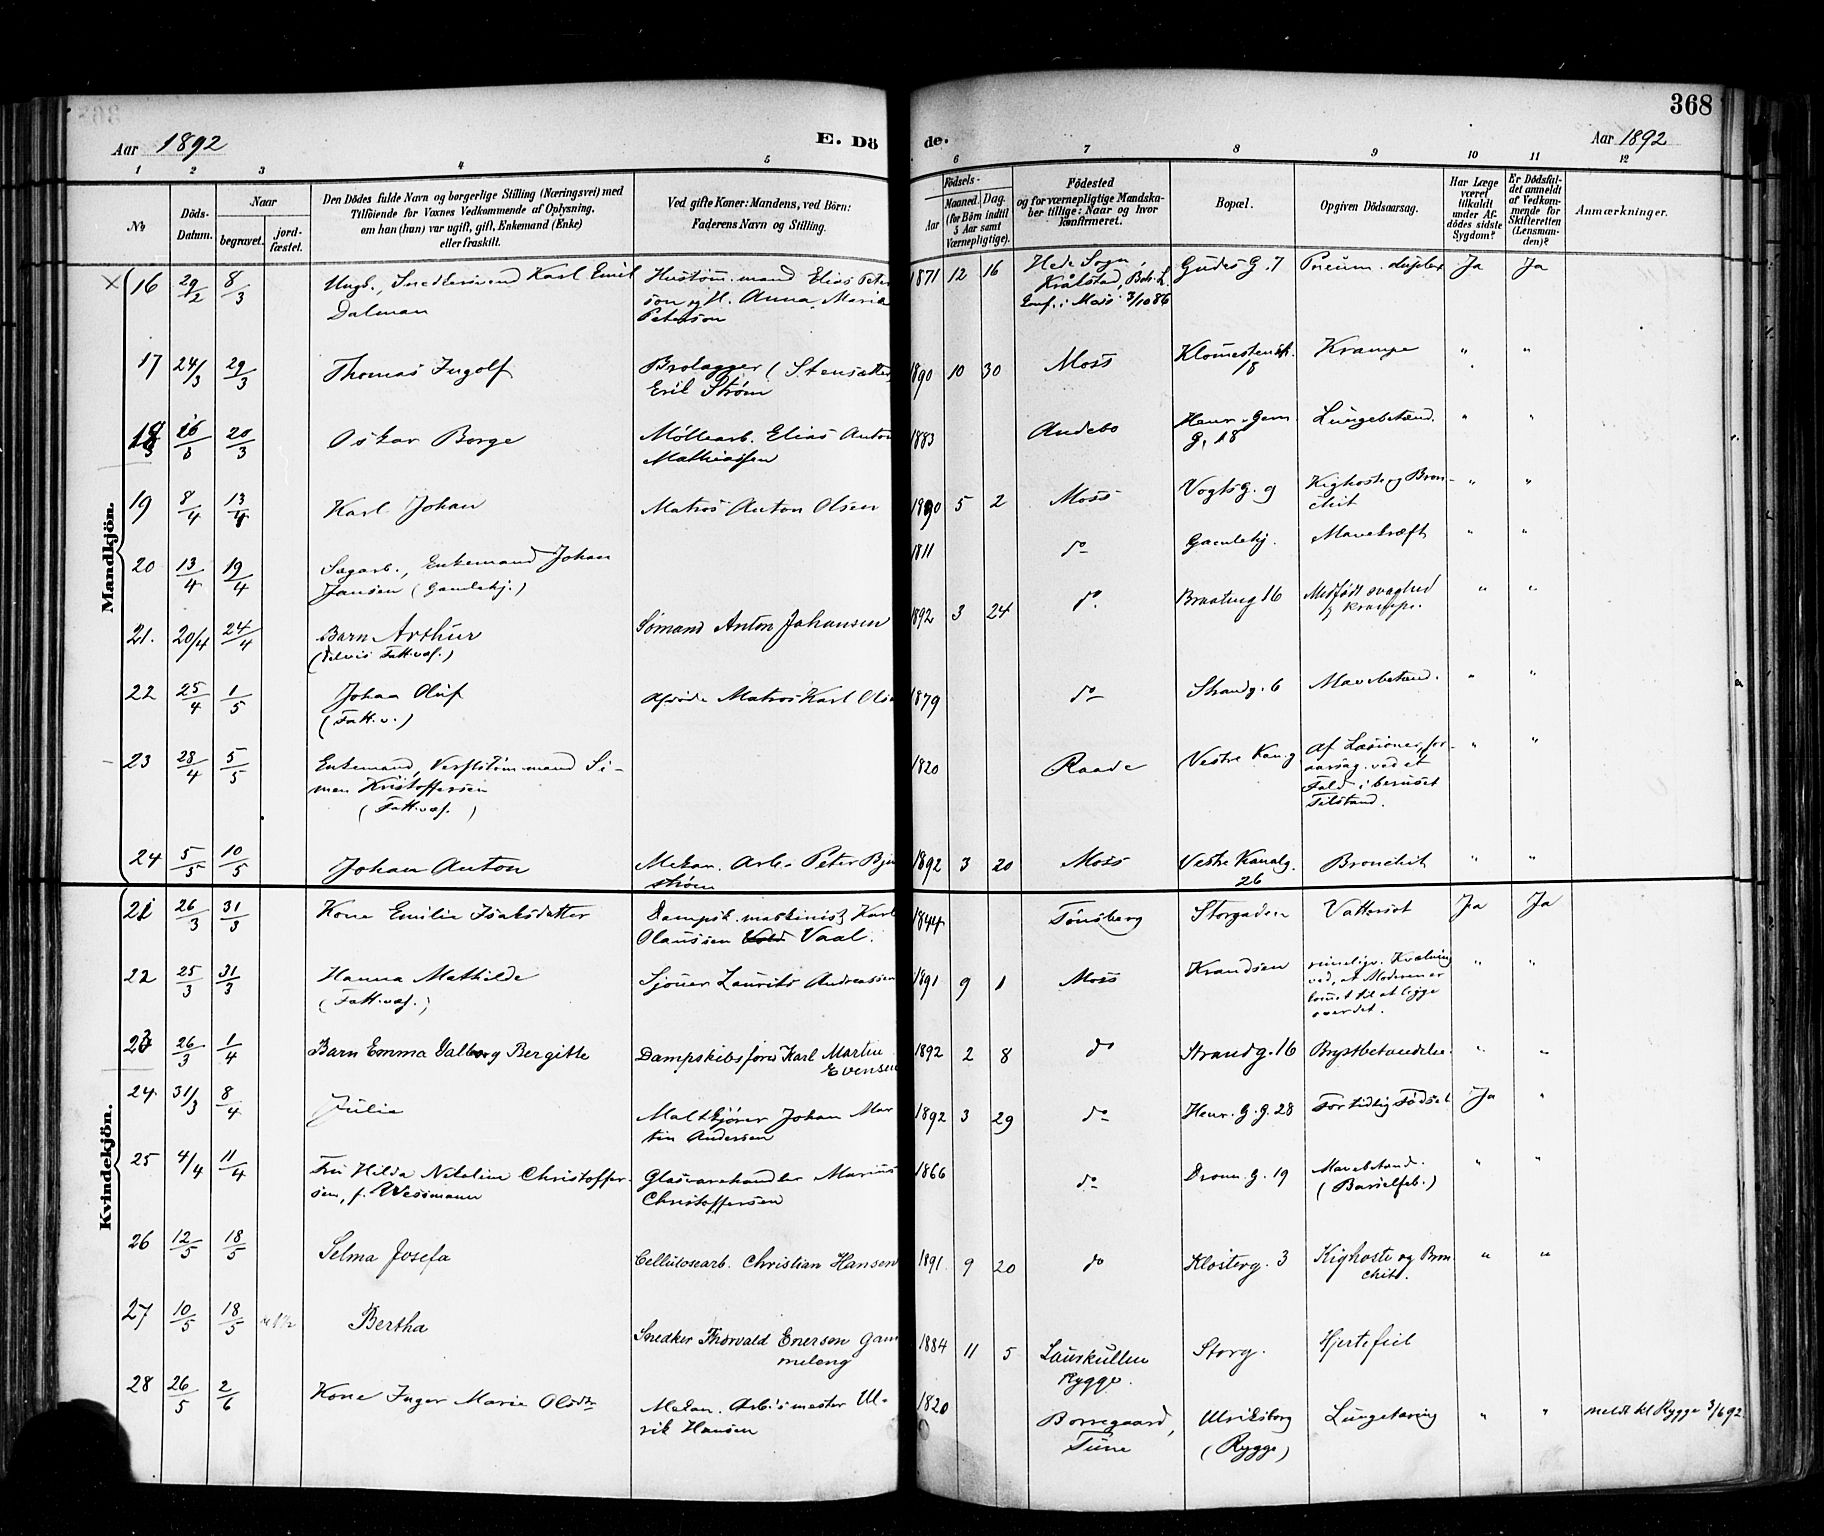 368
Aar 1892
E. Dö
de.
Aar 1892
1 2 3 4 5 6 7 8 9 10 11 12
No
Döds-
Datum.
Naar
begravet.
jord-
fæstet.
Den Dödes fulde Navn og borgerlige Stilling (Næringsvei) med
Tilföiende for Voxnes Vedkommende af Oplysning,
om han (hun) var ugift, gift, Enkemand (Enke)
eller fraskilt.
Ved gifte Koner: Mandens, ved Börn:
Faderens Navn og Stilling.
Födsels-
Aar
Maaned. Dag.
(for Börn indtil
5 Aar samt
Værnepligtige).
Födested
og for værnepligtige Mandska-
ber tillige: Naar og hvor
konfirmeret.
Bopæl.
Opgiven Dödsaarsag.
Har Læge
været
tilkaldt
under Af-
dödes sidste
Sygdom?
Er Dödsfal-
det anmeldt
af Vedkom-
mende for
Skifteretten
(Lensman-
den)?
Anmærkninger.
Mandkjön.
16 29/2 8/3 Ungk., Snedkersvend Karl Emil
Dalman
Hustöm.mand Elias Peter
son og H. Anna Maria
Peterson
1871 12 16
Hede Sogn,
Kråkstad, Boh. L.
Conf. i Moss 3/10 86
Gudes G. 7 Pneum. duplex Ja Ja
17 24/3 29/3 Thomas Ingolf
Brolægger (Stensætter)
Erik Strøm
1890 10 30 Moss
18
Krampe " "
18 16/3 20/3 Oskar Borge
Møllearb. Elias Anton
Mathiassen
1883 Andebo
Henr. Gern
G. 18
Lungebetænd. " "
19 8/4 13/4 Karl Johan Matros Anton Olsen 1890 5 2 Moss Vogts G. 9
Kighoste og Bron-
chit
" "
20 13/4 19/4 Sagarb., Enkemand Johan
Jansen (Gamlehj.)
1811 do Gamlehj. Mavekræft " "
21. 20/4 24/4 Barn Arthur
(delvis Fatt.væs.)
Sömand Anton Johansen 1892 3 24 do. Braateng 16
Medfödt svaghed
og krampe.
" "
22 25/4 1/5 Johan Oluf
(Fatt.v.)
Afdöde Matros Karl Olsen 1879 do Strandg. 6 Mavebetænd. " "
23 28/4 5/5 Enkemand, Verftstöm.mand Si-
men Kristoffersen
(Fatt.væs.)
1820 Raade Vestre Kan.g
Af Læsioner, for-
aarsag. ved et
Fald i beruset
Tilstand.
" "
24 5/5 10/5 Johan Anton
Mekan. Arb. Peter Bjur
strøm
1892 3 20 Moss
Vestre Kanalg.
26
Bronchit " "
Kvindekjön.
21 26/3 31/3 Kone Emilie Isaksdatter
Dampsk. maskinist Karl
Olaussen Vaal.
1844 Tönsberg Storgaden Vattersot Ja Ja
22 25/3 31/3 Hanna Mathilde
(Fatt.væs.)
Sjouer Laurits Andreassen 1891 9 1 Moss Krandsen
rimeligv. Kvælning
ved, at Moderen er
kommet til at ligge
over det.
" "
23 26/3 1/4 Barn Emma Valborg Bergitte
Dampskibsförer Karl Martin
Evensen
1892 2 8 do Strandg. 16 Brystbetændelse. " "
24 31/3 8/4 Julie
Maltkjörer Johan Mar
tin Andersen
1892 3 29 do Henr. G. G. 28 For tidlig Födsel Ja "
25 4/4 11/4 Fru Hilda Nikoline Christoffer-
sen, f. Wessmann
Glasvarehandler Marius
Christoffersen
1866 do Dronn. G. 19
Mavebetænd.
(Barselfeb.)
" "
26 12/5 18/5 Selma Josefa Cellulosearb. Christian Hansen 1891 9 20 do Klosterg. 3
Kighoste og Bron
chit.
" "
27 10/5 18/5 Bertha
Snedker Thorvald Enersen Gam
meleng
1884 11 5
Lauskullen
Rygge.
Storg. Hjertefeil
28 26/5 2/6 Kone Inger Marie Olsdtr
Mekan. Arb.smester Ul-
rik Hansen
1820
Borregaard,
Tune
Ulriksborg
(Rygge)
Lungetæring " " meldt til Rygge 3/6 92